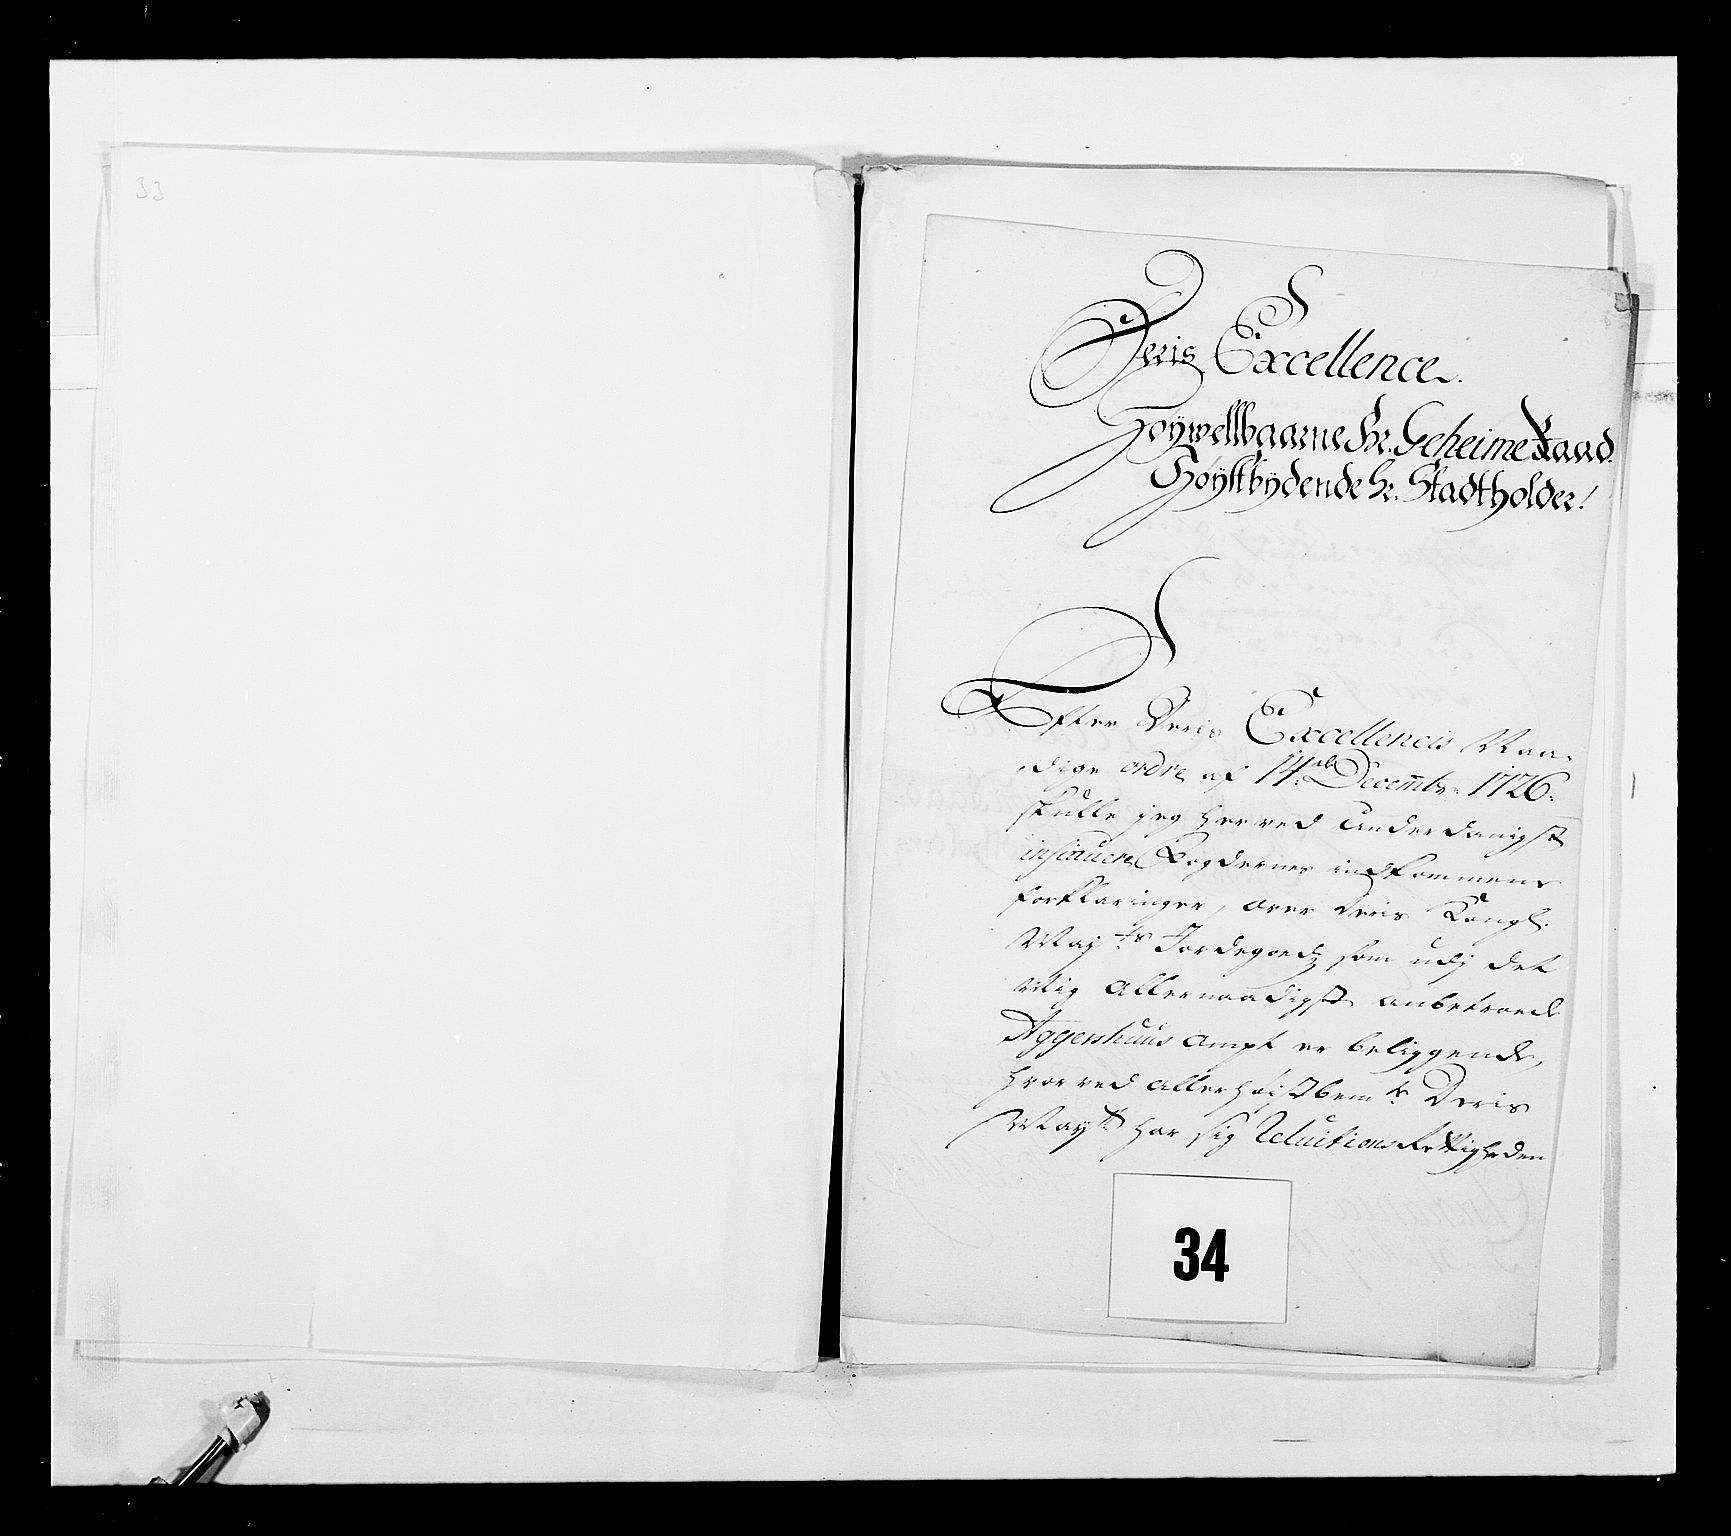 33
Deris Excellence.
Høÿwellbaarne Hr. Geheime Raad
Høÿstbÿdende Hr. Stadtholder!
Efter Deris Excellencis Naa-
dige ordre af 14de Decembr: 1726.
skulle jeg herved underdanigst
insinuere Fogdernes indkommene
forklaringer, over Deris Kongl.
Mayts Jordegoedz, som udj det
Mig allernaadigst anbetroede
Aggershuus ampt er beliggende,
hvorved allerhøistbemte Deris
Maytt har sig Reluitions Rettigheden
34